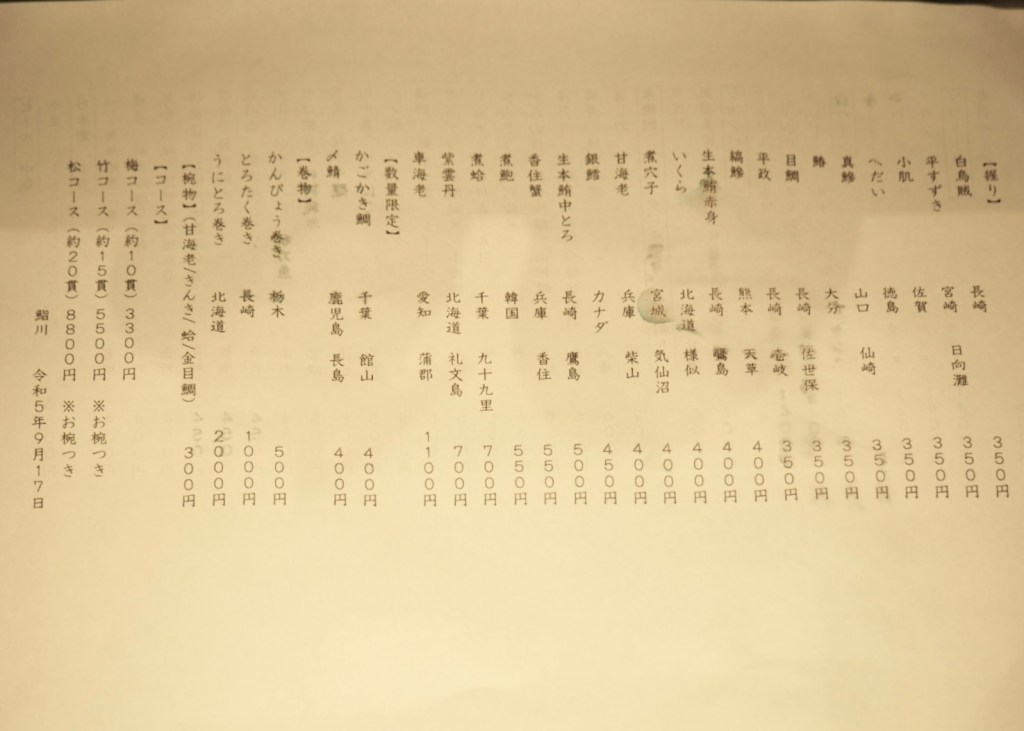 【握り】
白烏賊 長崎 350円
平すずき 宮崎 日向灘 350円
小肌 佐賀 350円
へだい 徳島 350円
真鯵 山口 仙崎 350円
鰆 大分 350円
目鯛 長崎 佐世保 350円
平政 長崎 壱岐 350円
縞鯵 熊本 天草 400円
生本鮪赤身 長崎 鷹島 400円
いくら 北海道 様似 400円
煮穴子 宮城 気仙沼 400円
甘海老 兵庫 柴山 400円
銀鱈 カナダ 450円
生本鮪中とろ 長崎 鷹島 500円
香住蟹 兵庫 香住 550円
煮鮑 韓国 550円
煮蛤 千葉 九十九里 700円
紫雲丹 北海道 礼文島 700円
車海老 愛知 蒲郡 1100円
【数量限定】
かごかき鯛 千葉 館山 400円
〆鯖 鹿児島 長島 400円
【巻物】
かんぴょう巻き 栃木 500円
とろたく巻き 長崎 1000円
うにとろ巻き 北海道 2000円
【椀物】(甘海老/きんき/蛤/金目鯛) 300円
【コース】
梅コース(約10貫)3300円
竹コース(約15貫)5500円 ※お椀つき
松コース(約20貫)8800円 ※お椀つき
鮨川 令和5年9月17日